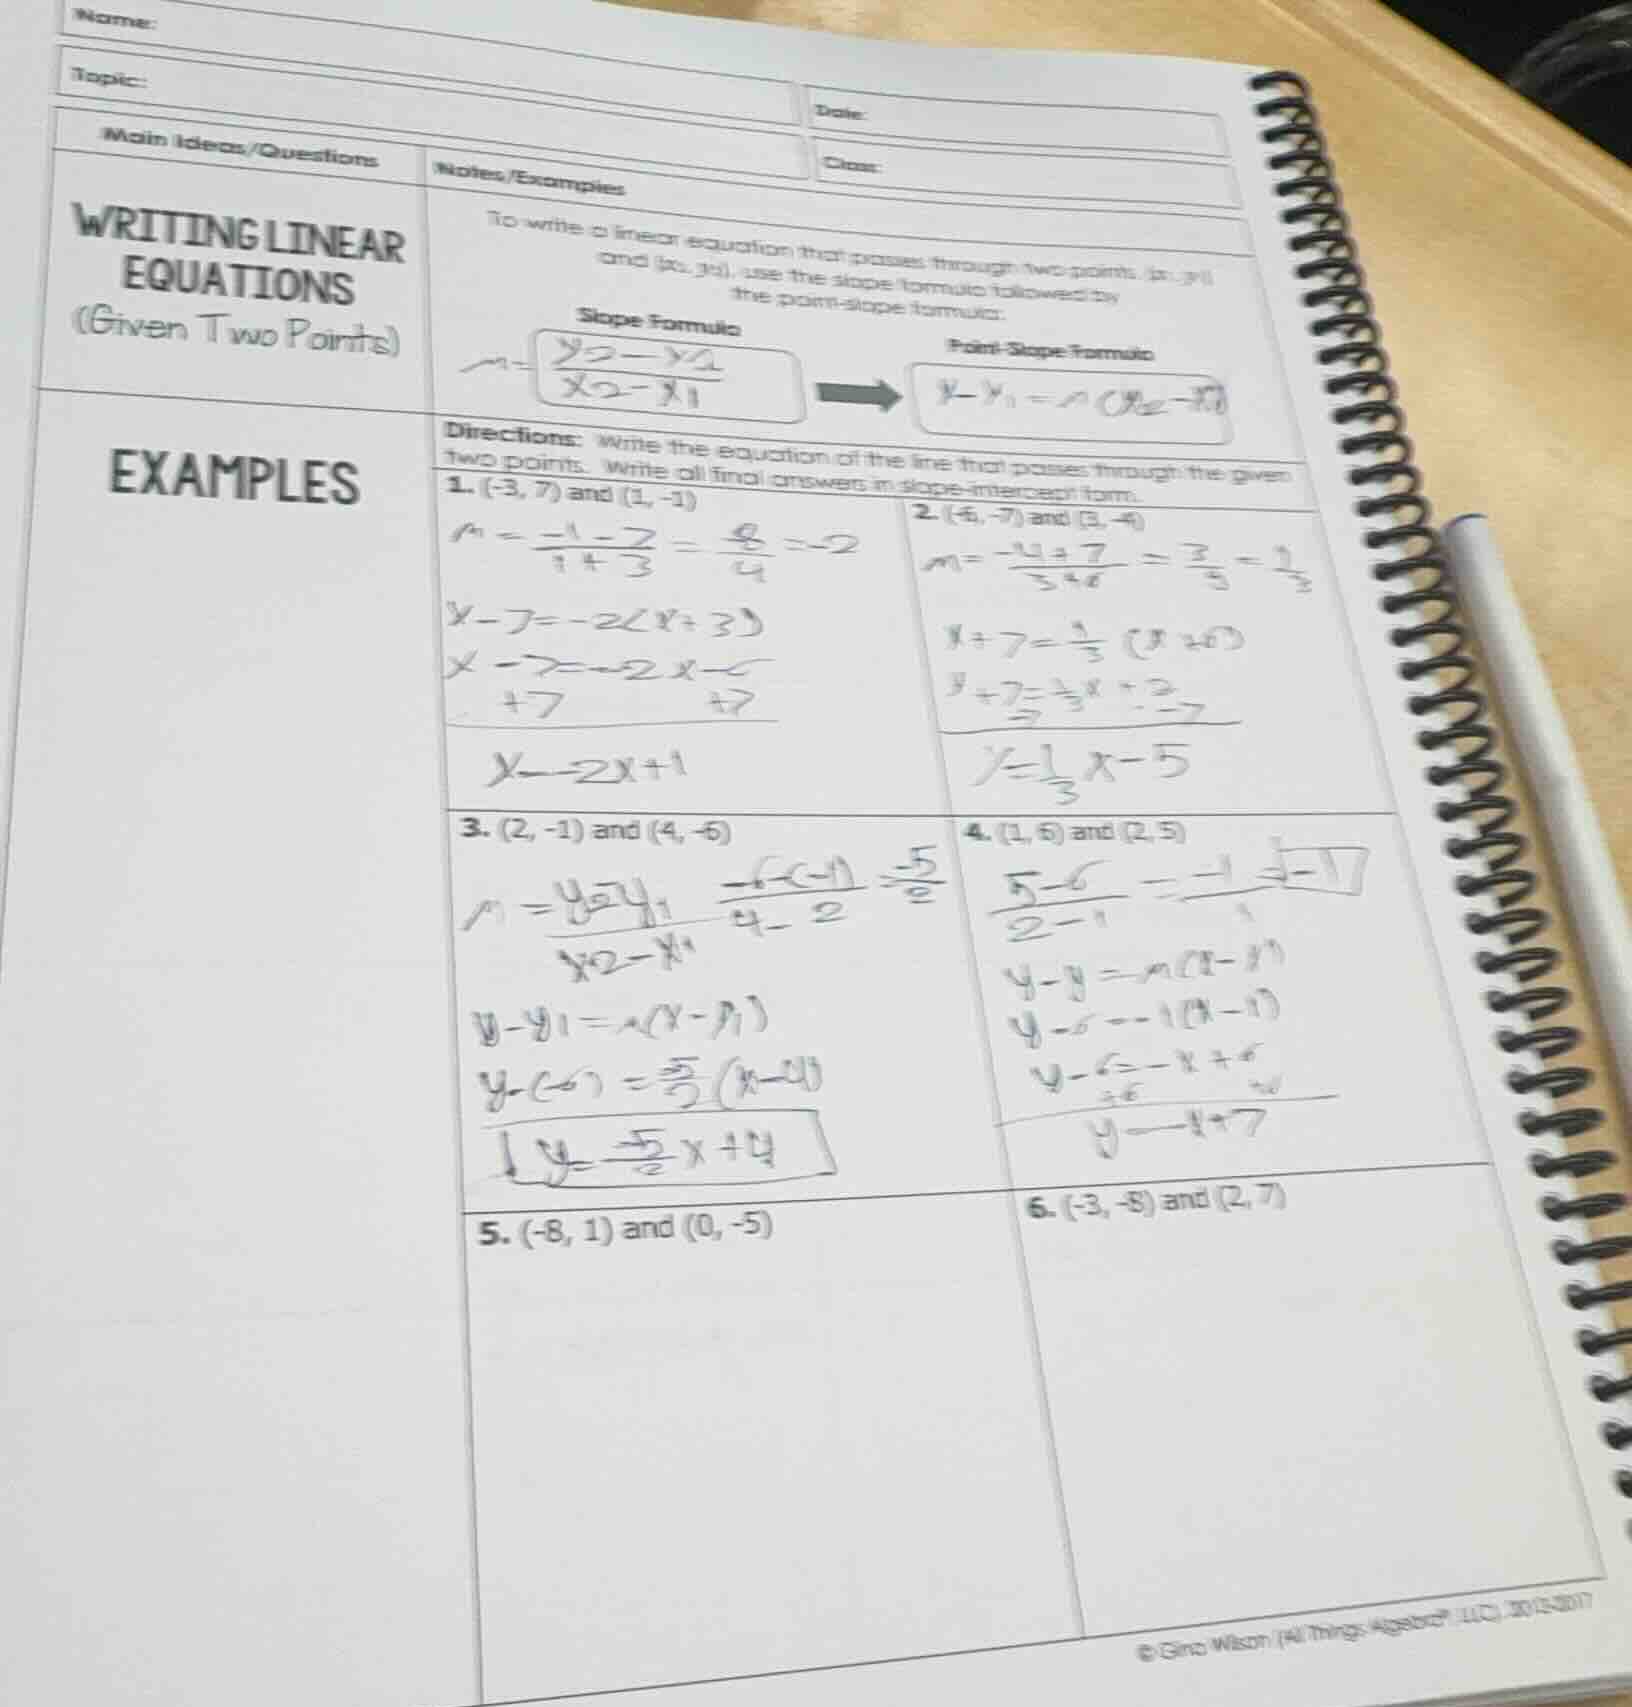 Name:
Topic:
Date:
Class:
Main Ideas/Questions
Notes/Examples
WRITING LINEAR
EQUATIONS
(Given Two Points)
To write a linear equation that passes through two points, (x₁, y₁)
and (x₂, y₂), use the slope formula followed by
the point-slope formula:
Slope Formula
Point-Slope Formula
m = y2 - y1 / x2 - x1
y - y1 = m(x2 - x1)
EXAMPLES
Directions: Write the equation of the line that passes through the given
two points. Write all final answers in slope-intercept form.
1. (-3, 7) and (1, -1)
m = -1 - 7 / 1 + 3 = 8/4 = -2
y - 7 = -2(x + 3)
y - 7 = -2x - 6
+7 +7
y = -2x + 1
2. (-6, -7) and (3, -4)
m = -4 + 7 / 3 + 6 = 3/9 = 1/3
y + 7 = 1/3 (x + 6)
y + 7 = 1/3 x + 2
-7 -7
y = 1/3 x - 5
3. (2, -1) and (4, -6)
m = y2 - y1 / x2 - x1 -6 - (-1) / 4 - 2 = -5/2
y - y1 = m(x - x1)
y - (-6) = -5/2 (x - 4)
y = -5/2 x + 4
4. (1, 6) and (2, 5)
5 - 6 / 2 - 1 = -1 / 1 = -1
y - y = m(x - x1)
y - 6 = -1(x - 1)
y - 6 = -x + 6
+6 +6
y = -x + 7
5. (-8, 1) and (0, -5)
6. (-3, -8) and (2, 7)
© Gina Wilson (All Things Algebra®, LLC), 2012-2017